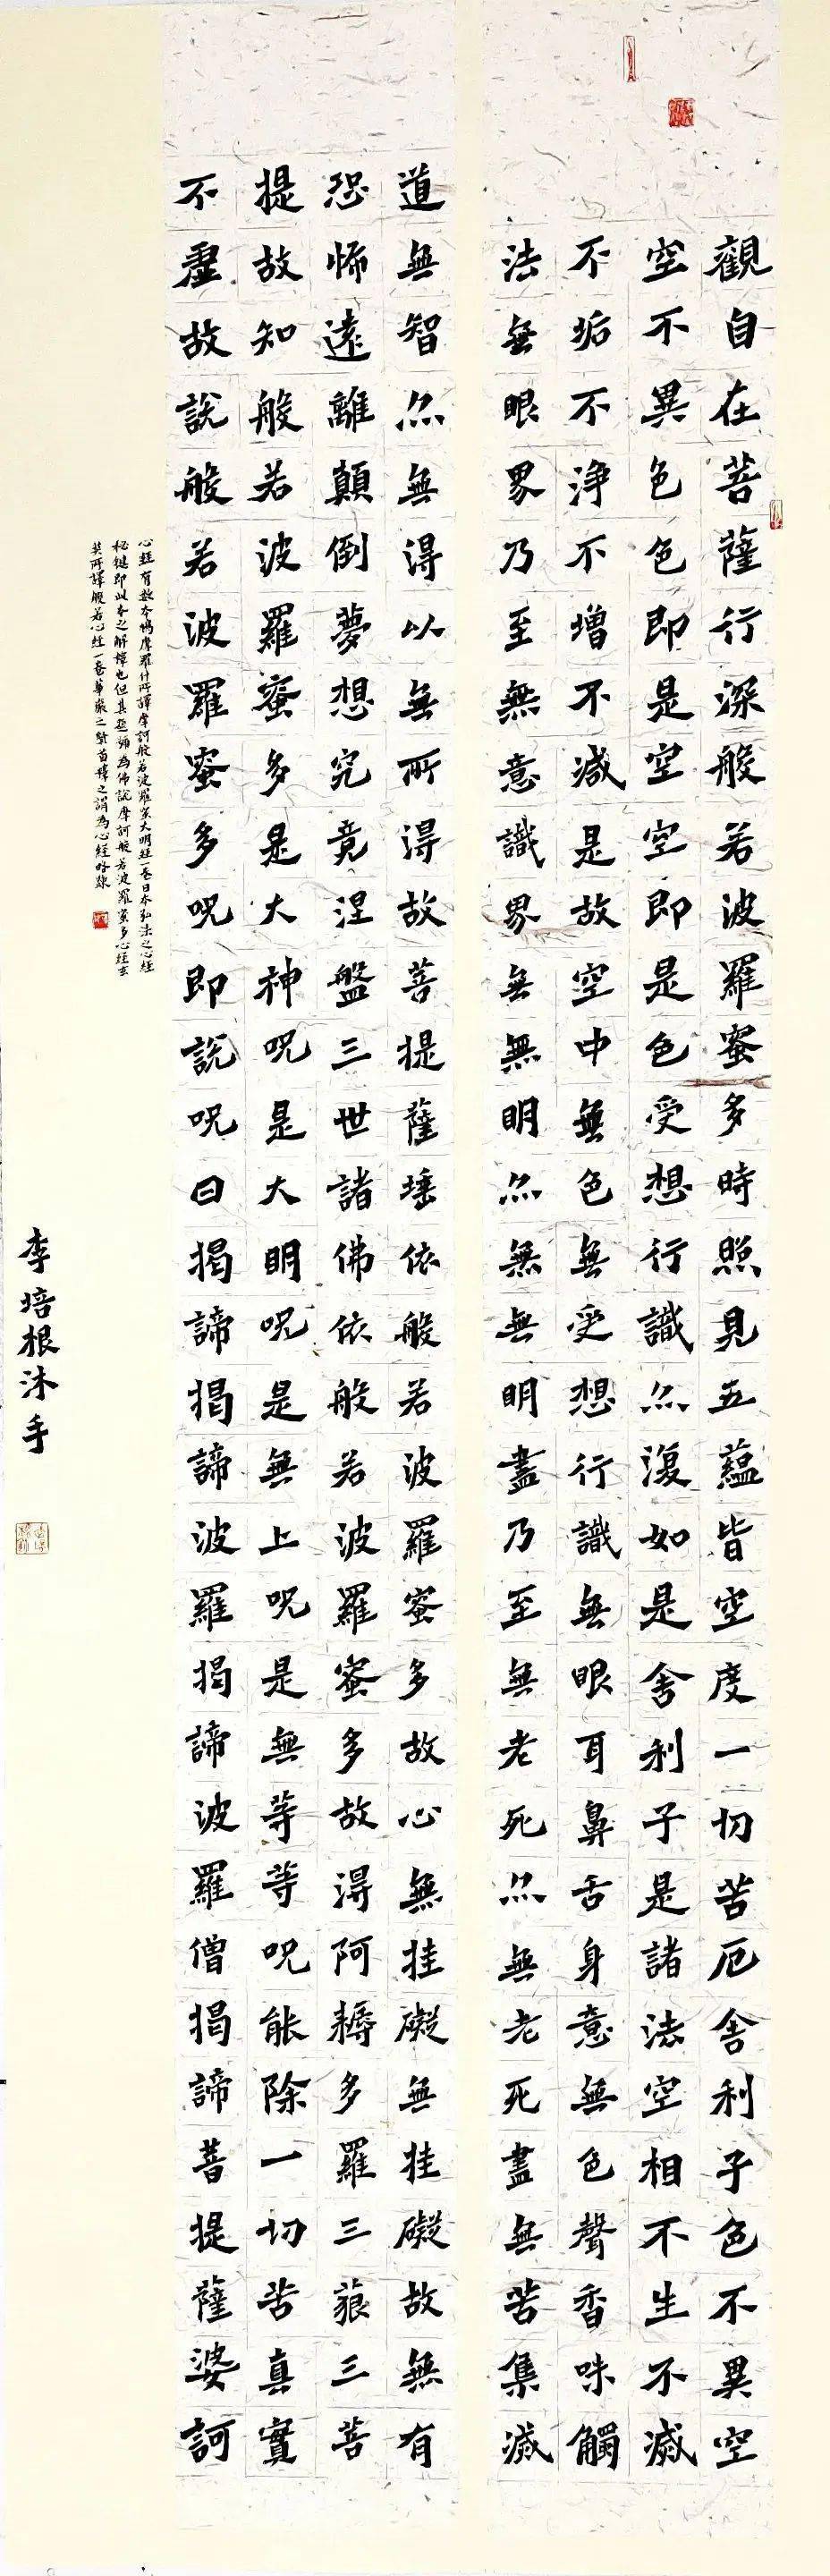 觀自在菩薩行深般若波羅蜜多時照見五蘊皆空度一切苦厄舍利子色不異空
空不異色色即是空空即是色受想行識亦復如是舍利子是諸法空相不生不滅
不垢不淨不增不減是故空中無色無受想行識無眼耳鼻舌身意無色聲香味觸
法無眼界乃至無意識界無無明亦無無明盡乃至無老死亦無老死盡無苦集滅
道無智亦無得以無所得故菩提薩埵依般若波羅蜜多故心無挂礙無挂礙故無有
恐怖遠離顛倒夢想究竟涅盤三世諸佛依般若波羅蜜多故得阿耨多羅三藐三菩
提故知般若波羅蜜多是大神呪是大明呪是無上呪是無等等呪能除一切苦真實
不虛故說般若波羅蜜多呪即說呪曰揭諦揭諦波羅揭諦波羅僧揭諦菩提薩婆訶
心經有數本鳩摩羅什所譯摩訶般若波羅蜜大明經一卷日本弘法之心經
秘鍵即此本之解釋也但其題號為佛說摩訶般若波羅蜜多心經玄
奘所譯般若心經一卷華嚴之賢首釋之謂為心經略疏
李培根沐手